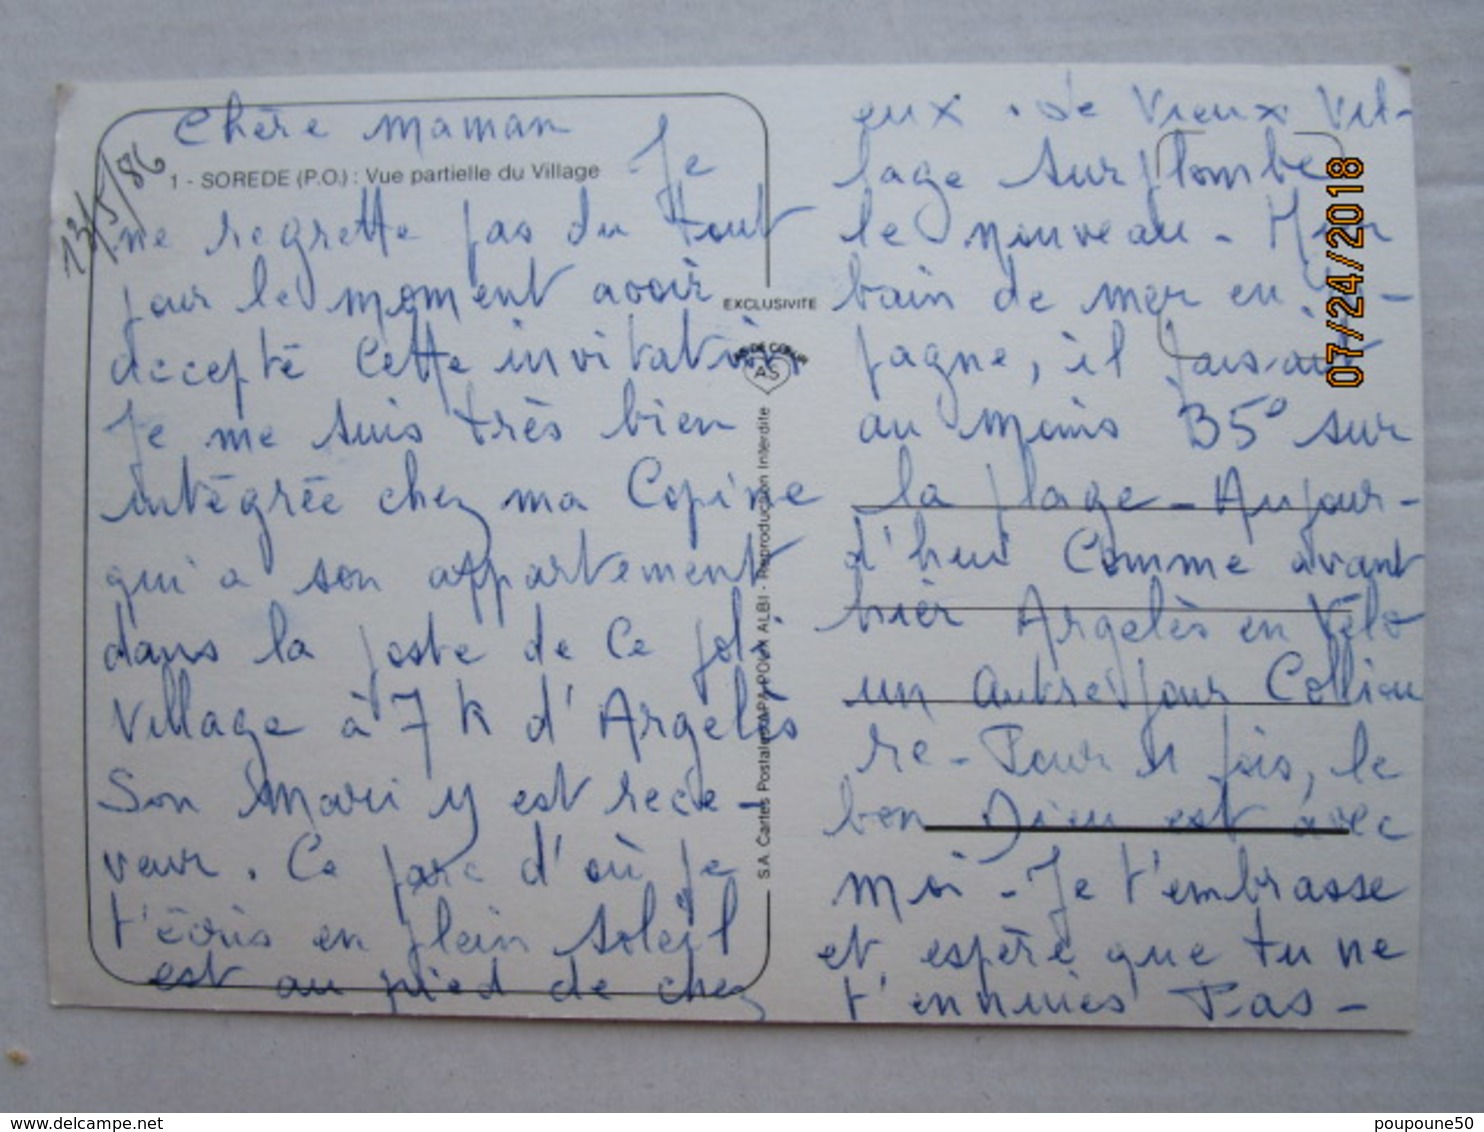 13/5/86
Chère maman
1 - SOREDE (P.O.) : Vue partielle du Village
Je
ne regrette pas du tout
pour le moment avoir
accepté cette invitation
Je me suis très bien
intégrée chez ma Copine
qui a son appartement
dans la poste de ce joli
Village à 7 k d'Argelès
Son mari y est rece-
veur. Ce parc d'où je
t'écris en plein soleil
est au pied de chez
EXCLUSIVITE
AS DE CŒUR
A.S
S.A. Cartes Postales APA-POUX ALBI - Reproduction Interdite
eux. Le Vieux Vil-
lage surplombe
le nouveau - Hier
bain de mer en
pagne, il faisait
au moins 35° sur
la plage - Aujour-
d'hui comme avant
hier Argelès en Vélo
un autre jour Colliou
re - Pour 1 fois, le
bon Dieu est avec
moi - Je t'embrasse
et espère que tu ne
t'ennuies Pas -
07/24/2018
poupoune50